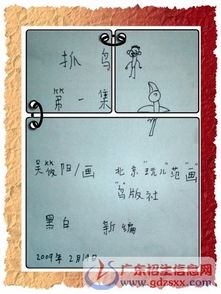 抓鸟
第一集
吴筱阳/画 北京"玩儿"范"画"
"鸟版社"
黑白 新编
2009年 2月19日
广东招生信息网
www.gdzsxx.com